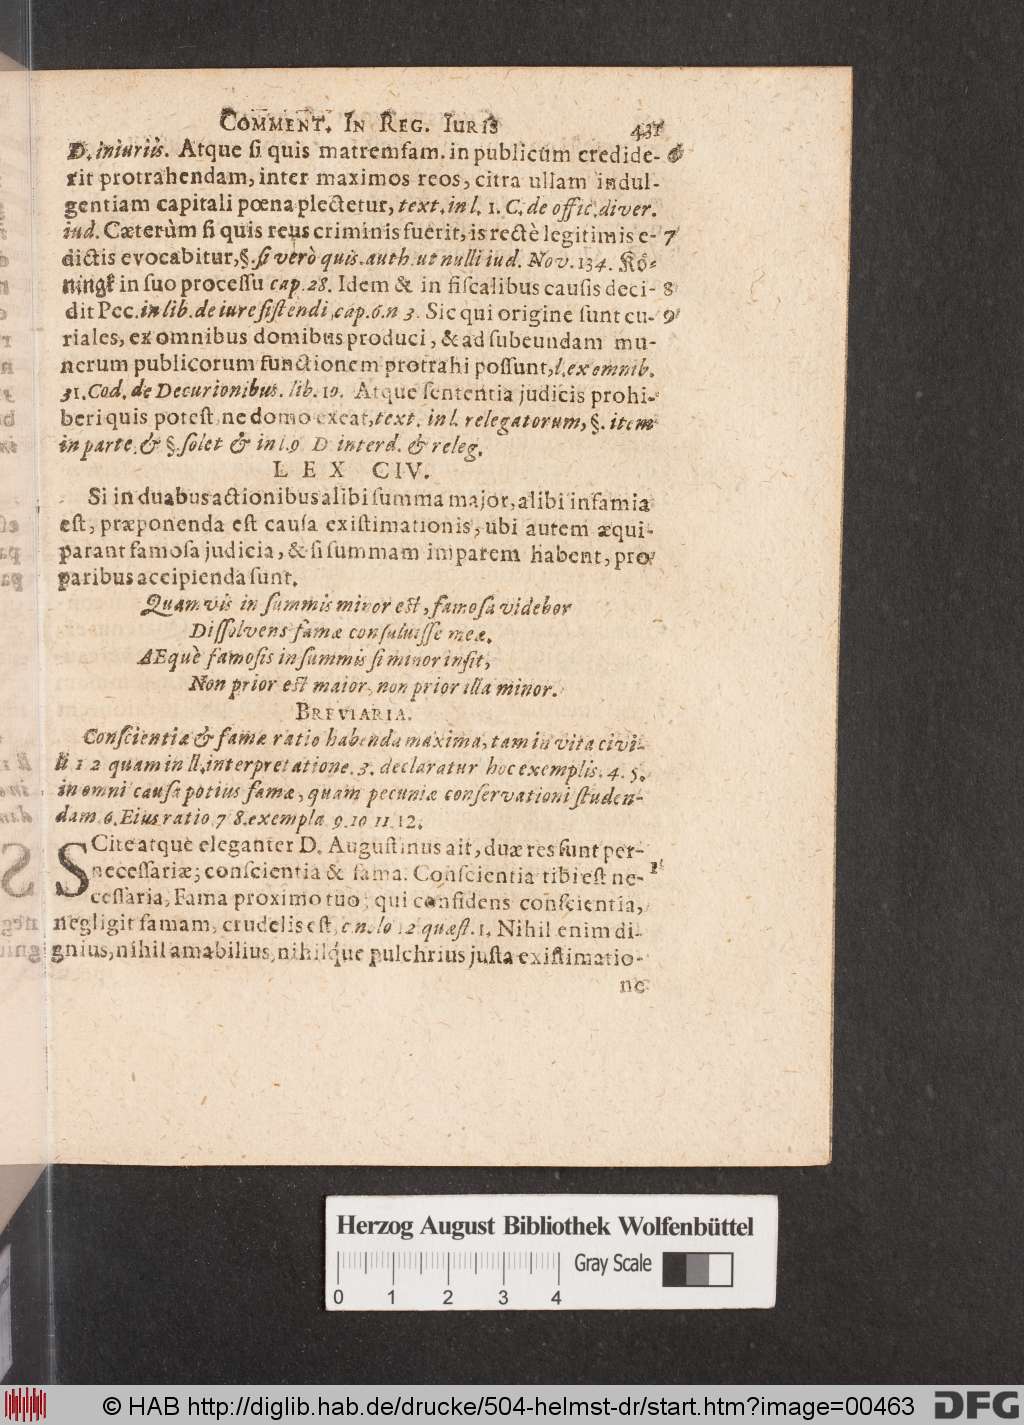 COMMENT. IN REG. IURIS 431
D. iniuriis. Atque ſi quis matremfam. in publicùm credide- 6
rit protrahendam, inter maximos reos, citra ullam indul-
gentiam capitali pœna plectetur, text. in l. 1. C. de offic. diver.
iud. Cæterùm ſi quis reus criminis fuerit, is rectè legitimis e- 7
dictis evocabitur, §. ſi verò quis. auth. ut nulli iud. Nov. 134. Kö-
ningk in ſuo proceſſu cap. 28. Idem & in fiſcalibus cauſis deci- 8
dit Pec. in lib. de iure ſiſtendi, cap. 6. n 3. Sic qui origine ſunt cu- 9
riales, ex omnibus domibus produci, & ad ſubeundam mu-
nerum publicorum functionem protrahi poſſunt, l. ex omnib.
31. Cod. de Decurionibus. lib. 10. Atque ſententia judicis prohi-
beri quis poteſt, ne domo exeat, text. in l. relegatorum, §. item
in parte. & §. ſolet & in l. 9 D interd. & releg.
LEX CIV.
Si in duabus actionibus alibi ſumma major, alibi infamia
eſt, præponenda eſt cauſa exiſtimationis, ubi autem æqui-
parant famoſa judicia, & ſi ſummam imparem habent, pro
paribus accipienda ſunt.
Quamvis in ſummis minor eſt, famoſa videbor
Diſſolvens famæ conſuluiſſe meæ.
AEquè famoſis in ſummis ſi minor inſit,
Non prior eſt maior, non prior illa minor.
BREVIARIA.
Conſcientiæ & famæ ratio habenda maxima, tam in vita civi-
li 1 2 quam in ll. interpretatione. 3. declaratur hoc exemplis. 4. 5.
in omni cauſa potius famæ, quàm pecuniæ conſervationi ſtuden-
dam 6. Eius ratio 7 8. exempla 9. 10 11. 12.
SCite atque eleganter D. Auguſtinus ait, duæ res ſunt per-
neceſſariæ; conſcientia & fama. Conſcientia tibi eſt ne- 1
ceſſaria, Fama proximo tuo; qui confidens conſcientia,
negligit famam, crudelis eſt, 12 quæſt. 1. Nihil enim di-
gnius, nihil amabilius, nihilq́ue pulchrius juſta exiſtimatio-
ne
Herzog August Bibliothek Wolfenbüttel
Gray Scale
0 1 2 3 4
© HAB http://diglib.hab.de/drucke/504-helmst-dr/start.htm?image=00463 DFG